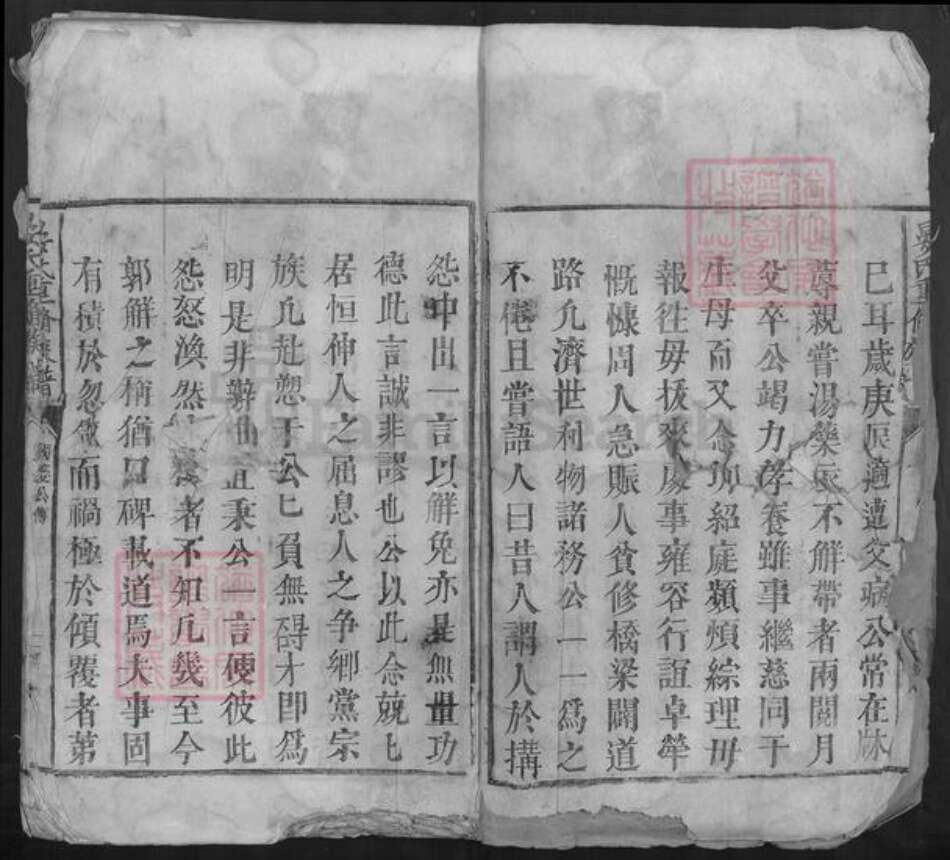 已耳歲庚辰適遭父病公常在牀
蓐親嘗湯藥衣不解帶者兩閱月
父卒公竭力孝養雖事繼慈同于
生母而又念功紹庭纇煩綜理毋
報往毋拔來處事雍容行誼卓犖
慨慷周人急賑人貧修橋梁闢道
路凢濟世利物諸務公一一爲之
不倦且嘗語人曰昔人謂人於搆
怨中出一言以解免亦是無量功
德此言誠非謬也公以此念兢匕
居恒伸人之屈息人之争鄉黨宗
族凢赴愬于公匕負無碍才卽爲
明是非辦曲直秉公一言使彼此
怨怒渙然 者不知凢幾至今
郭解之稱猶口碑載道焉大事固
有積於忽微而禍極於傾覆者第
重脩族譜